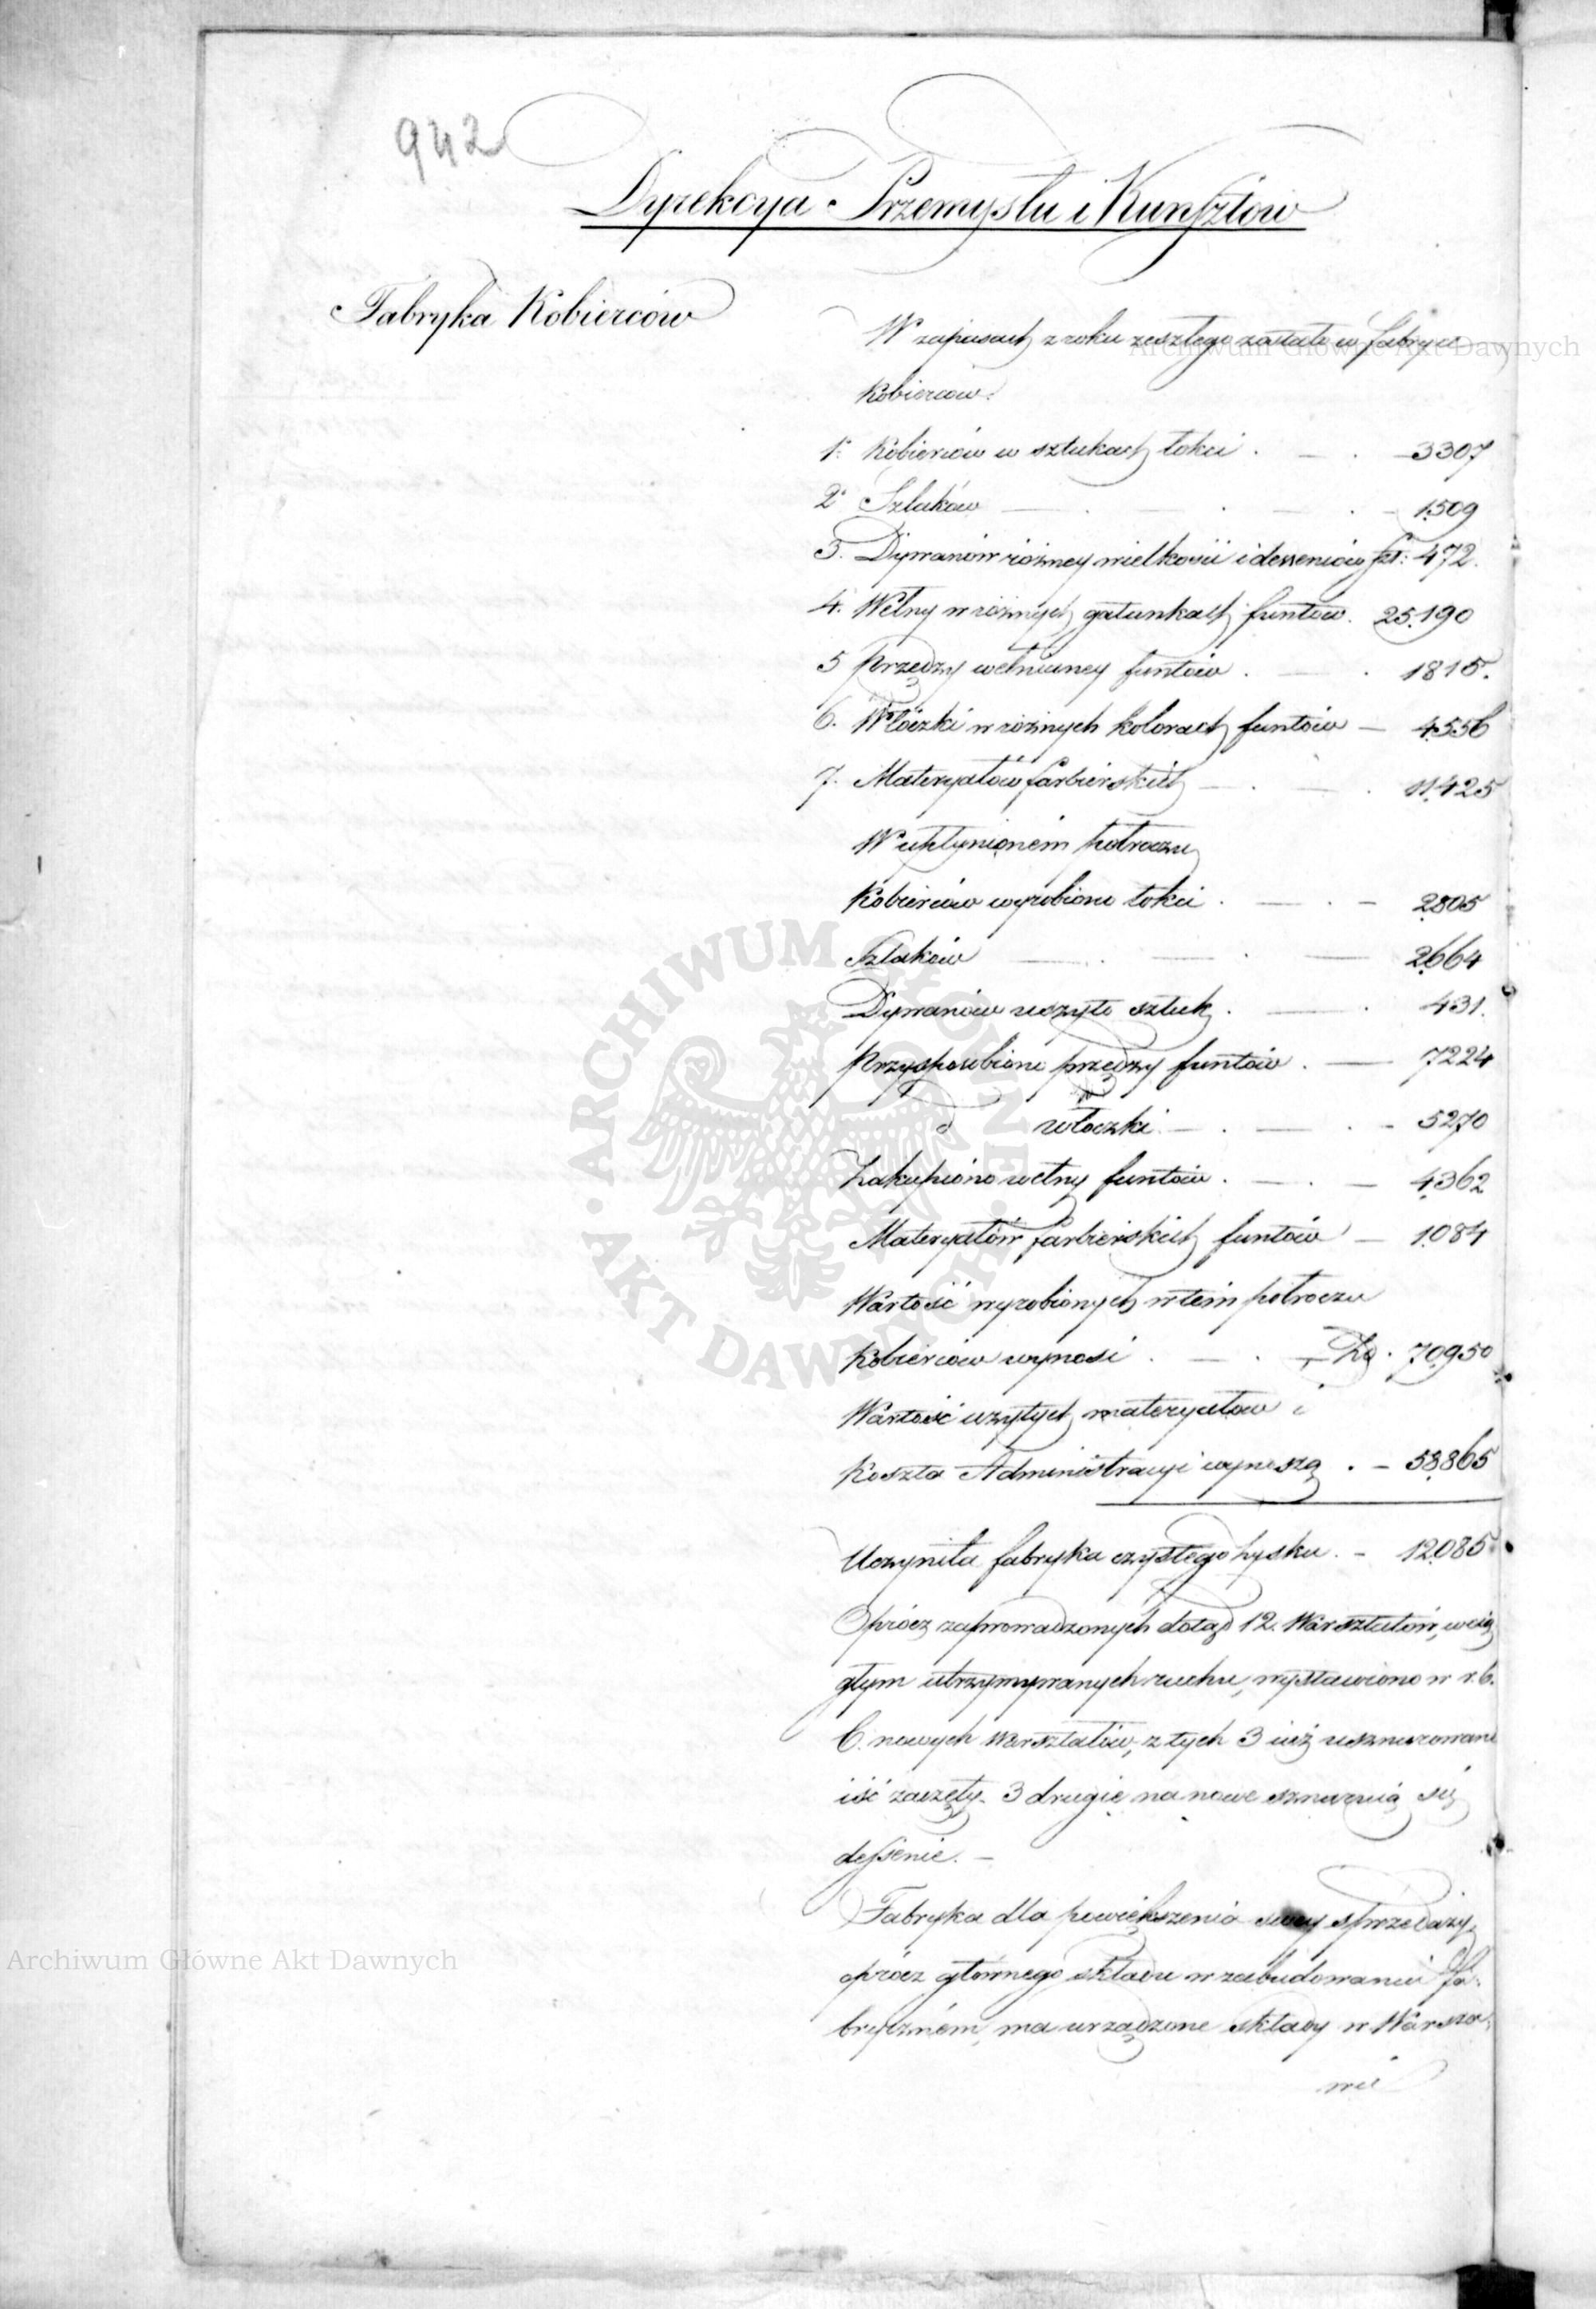 942
Dyrekcya Przemysłu i Kunsztów
Fabryka Kobierców
W zapasach z roku zeszłego zostało w fabryce
Kobierców.
1. Kobierców w sztukach łokci . — . — 3307
2. Szlaków — . — . — . — 1509
3. Dywanów różney wielkości i desseniów szt: 472.
4. Wełny w różnych gatunkach funtów. 25.190
5 Przędzy wełnianey funtów . — . 1815.
6. Włóczki w różnych kolorach funtów — 4556
7. Materyałów farbierskich — . — . 11.425
W upłynionem półroczu
Kobierców wyrobiono łokci . — . — 2805
Szlaków — . — . — 2664
Dywanów uszyto sztuk . — . 431.
Przysposobiono przędzy funtów . — 7224
d włóczki. — . — . — 5270
Zakupiono wełny funtów . — . — 4362
Materyałów farbierskich funtów — 1084
Wartość wyrobionych w tem półroczu
Kobierców wynosi . — . — Zł. 70950
Wartość użytych materyałów i
Koszta Administracyi wynoszą . — 58.865
Uczyniła fabryka czystego zysku. — 12085
Oprócz zaprowadzonych dotąd 12. Warsztatów, w cią
głym utrzymywanych ruchu, wystawiono w r. b.
6. nowych warsztatów, z tych 3 już usznurowane
iść zaczęły. 3 drugie na nowe sznuruią się
dessenie. —
Fabryka dla powiększenia swey sprzedaży,
oprócz głównego składu w zabudowaniu fa-
brycznem, ma urządzone składy w Warsza-
wie
Archiwum Główne Akt Dawnych
Archiwum Główne Akt Dawnych
ARCHIWUM GŁÓWNE AKT DAWNYCH